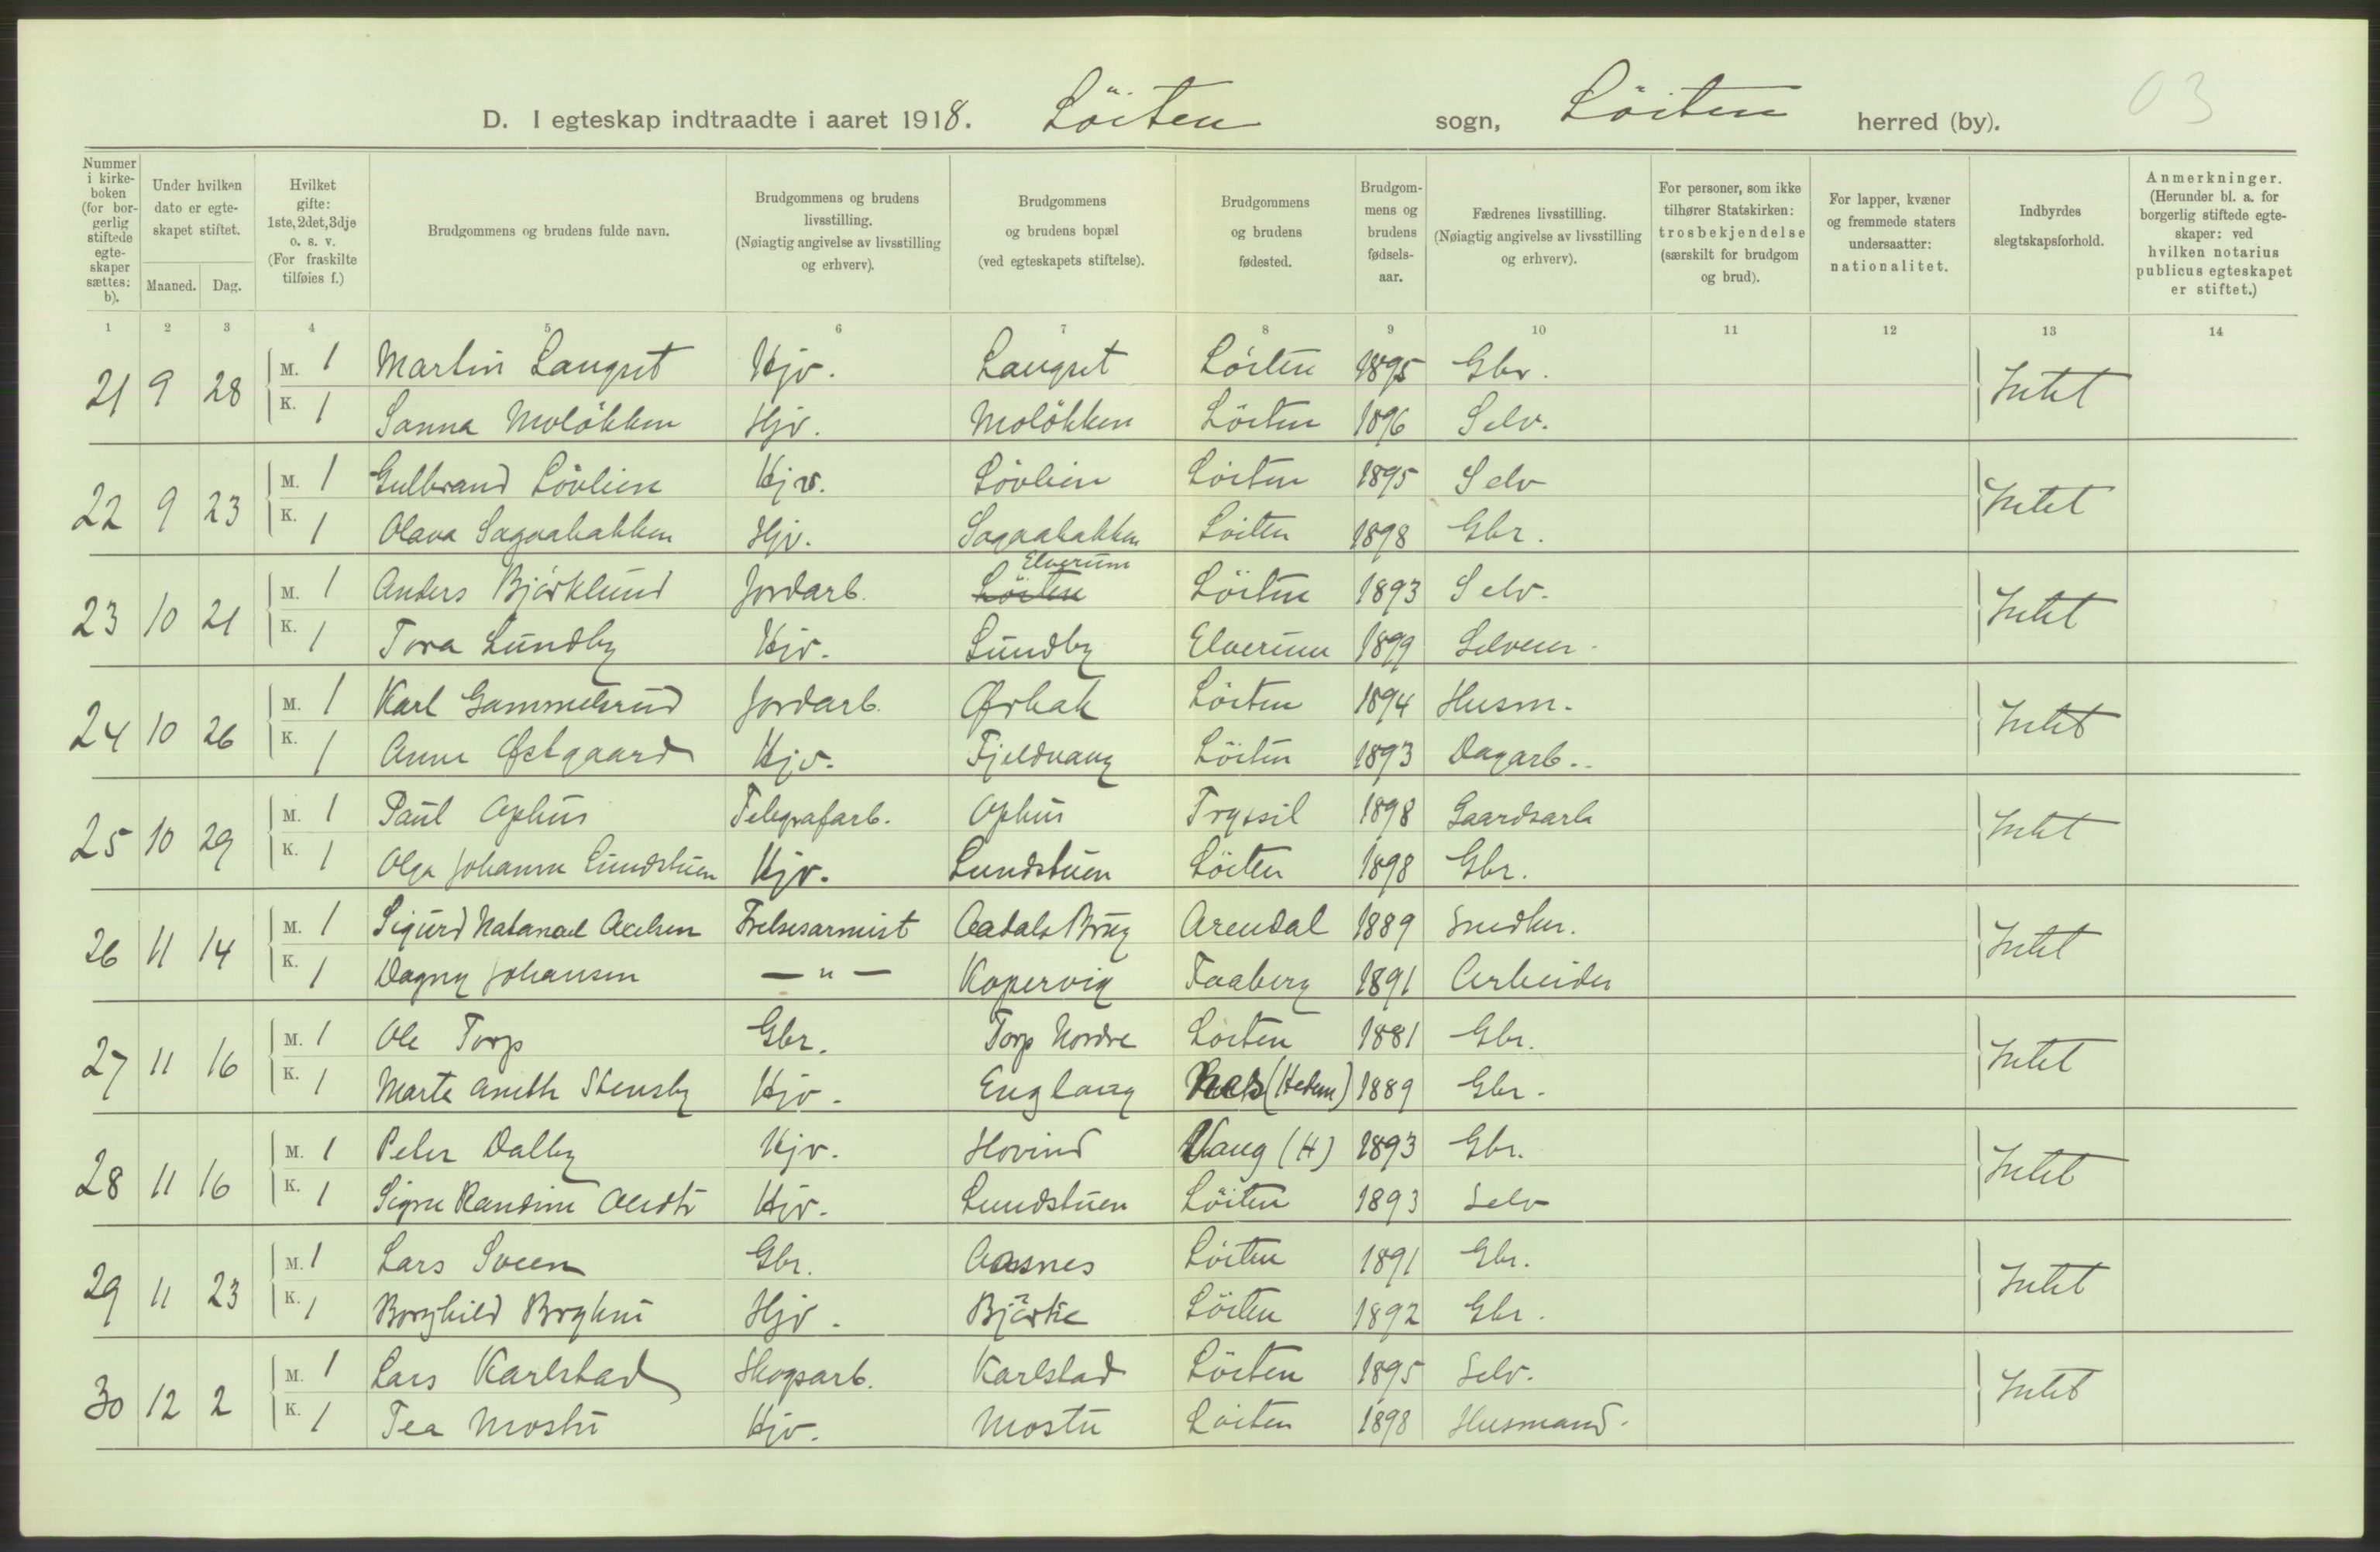 D. I egteskap indtraadte i aaret 1918. Löiten sogn, Löiten herred (by).
03
Nummer i kirke- boken (for bor- gerlig stiftede egte- skaper sættes: b).
Under hvilken dato er egte- skapet stiftet.
Maaned. Dag.
Hvilket gifte: 1ste, 2det, 3dje o. s. v. (For fraskilte tilføies f.)
Brudgommens og brudens fulde navn.
Brudgommens og brudens livsstilling. (Nøiagtig angivelse av livsstilling og erhverv).
Brudgommens og brudens bopæl (ved egteskapets stiftelse).
Brudgommens og brudens fødested.
Brudgom- mens og brudens fødsels- aar.
Fædrenes livsstilling. (Nøiagtig angivelse av livsstilling og erhverv).
For personer, som ikke tilhører Statskirken: trosbekjendelse (særskilt for brudgom og brud).
For lapper, kvæner og fremmede staters undersaatter: nationalitet.
Indbyrdes slegtskapsforhold.
Anmerkninger. (Herunder bl. a. for borgerlig stiftede egte- skaper: ved hvilken notarius publicus egteskapet er stiftet.)
1 2 3 4 5 6 7 8 9 10 11 12 13 14
21 9 28 M. 1 Martin Langset Hjv. Langset Löiten 1895 Gbr. Intet
K. 1 Sanna Moløkken Hjv. Moløkken Löiten 1896 Selv.
22 9 23 M. 1 Gulbrand Lövlien Hjv. Lövlien Löiten 1895 Selv Intet
K. 1 Olava Sagaabakken Hjv. Sagaabakken Löiten 1898 Gbr.
Elverum
23 10 21 M. 1 Anders Björklund Jordarb. Löiten Löiten 1893 Selv. Intet
K. 1 Tora Lundby Hjv. Lundby Elverum 1899 Selveier.
24 10 26 M. 1 Karl Gammelsrud Jordarb. Ørbak Löiten 1894 Husm. Intet
K. 1 Anne Østgaard Hjv. Fjeldvang Löiten 1893 Dagarb.
25 10 29 M. 1 Paul Ophus Telegrafarb. Ophus Trysil 1898 Gaardsarb Intet
K. 1 Olga Johanne Lundstuen Hjv. Lundstuen Löiten 1898 Gbr.
26 11 14 M. 1 Sigurd Natanael Axelsen Frelsesarmist Aadals Brug Arendal 1889 Snedker. Intet
K. 1 Dagny Johansen — " — Kopervig Faaberg 1891 Arbeider
27 11 16 M. 1 Ole Torp Gbr. Torp Nordre Löiten 1881 Gbr. Intet
K. 1 Marte Anette Stensby Hjv. Englaug Nes (Hedem) 1889 Gbr.
28 11 16 M. 1 Peter Dalby Hjv. Hovind Vang (H) 1893 Gbr. Intet
K. 1 Signe Randine Hjv. Lundstuen Löiten 1893 Selv
29 11 23 M. 1 Lars Sveen Gbr. Aasnes Löiten 1891 Gbr. Intet
K. 1 Borghild Bryhni Hjv. Bjørke Löiten 1892 Gbr.
30 12 2 M. 1 Lars Karlstad Skogsarb. Karlstad Löiten 1895 Selv. Intet
K. 1 Tea Mostu Hjv. Mostu Löiten 1898 Husmand.